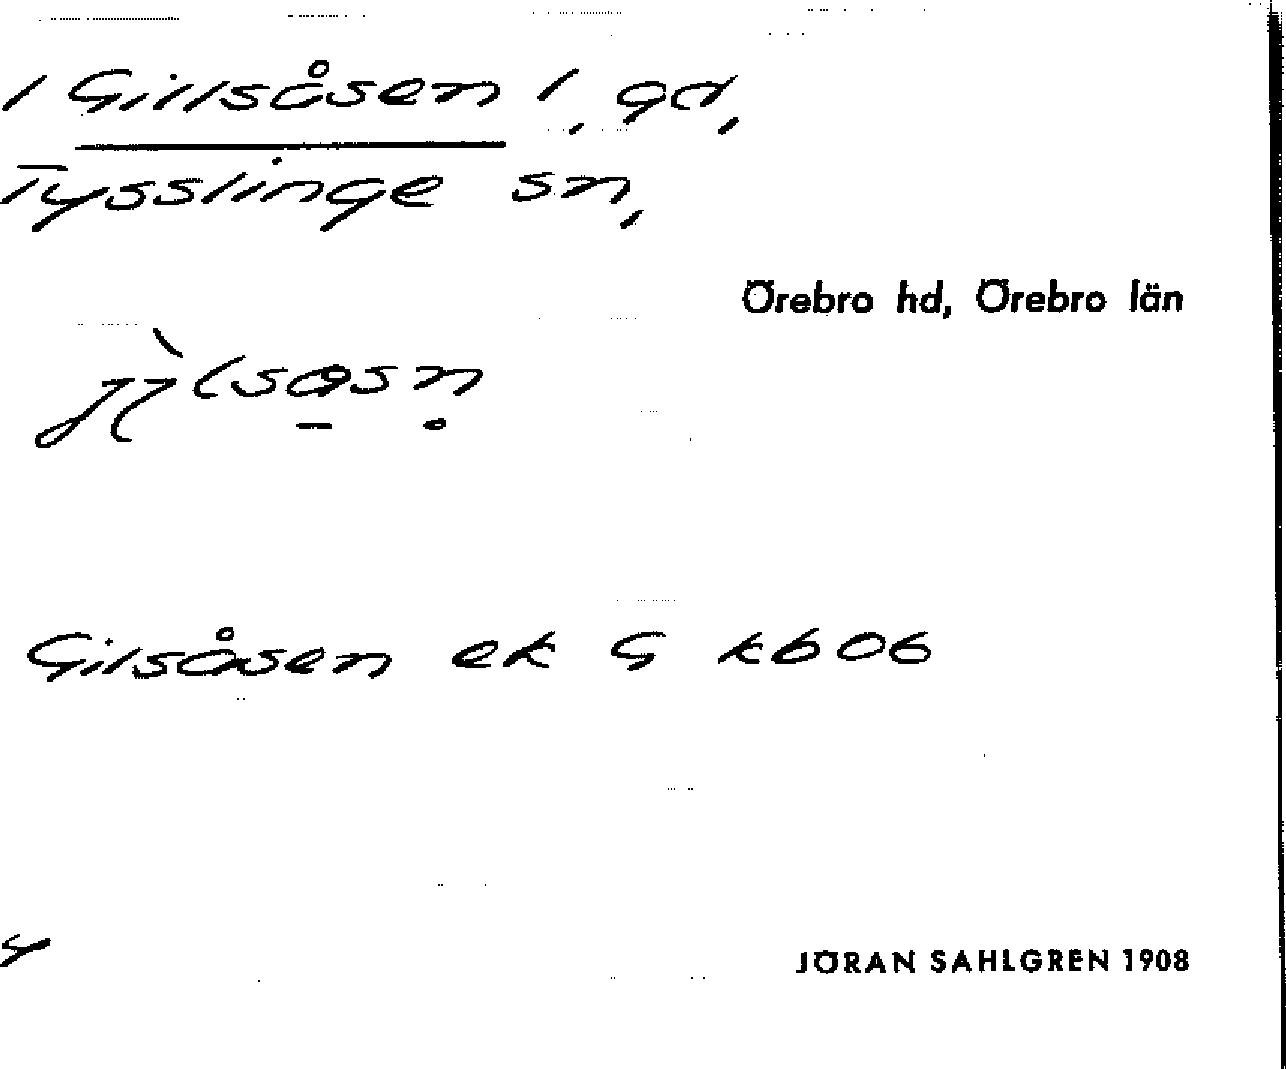 / Gillsåsen /, gd,
Tysslinge sn,
Örebro hd, Örebro län
Gilsåsen ek G kb06
JÖRAN SAHLGREN 1908